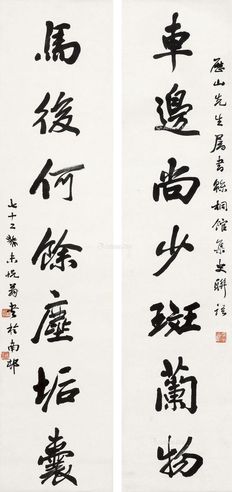 歷山先生屬書絲桐館集史聯語
車邊尚少斑蘭物
馬後何餘塵垢囊
七十二
書於南邨